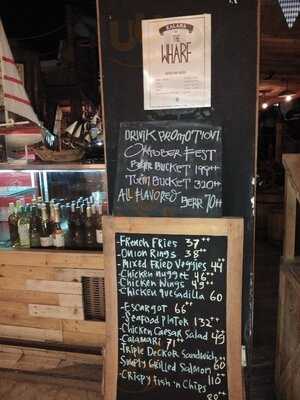 THE
WHARF
DRINK PROMOTION!
OKTOBER FEST
BEER BUCKET
BUCKET 320++
ALL FLAVORED BEER 70++
-FRENCH FRIES 37++
-ONION RINGS 38++
-MIXED FRIED VEGGIES 44
-CHICKEN NUGGET 46++
-CHICKEN WINGS 49++
-CHICKEN QUESADILLA 60
-ESCARGOT 66++
-SEAFOOD PLATER 132++
-CHICKEN CAESAR SALAD 49
-CALAMARI 71++
-TRIPLE DECKOR SANDWICH
-SIMPLY GRILLED SALMON 60
-CRISPY FISH 'N CHIPS 110